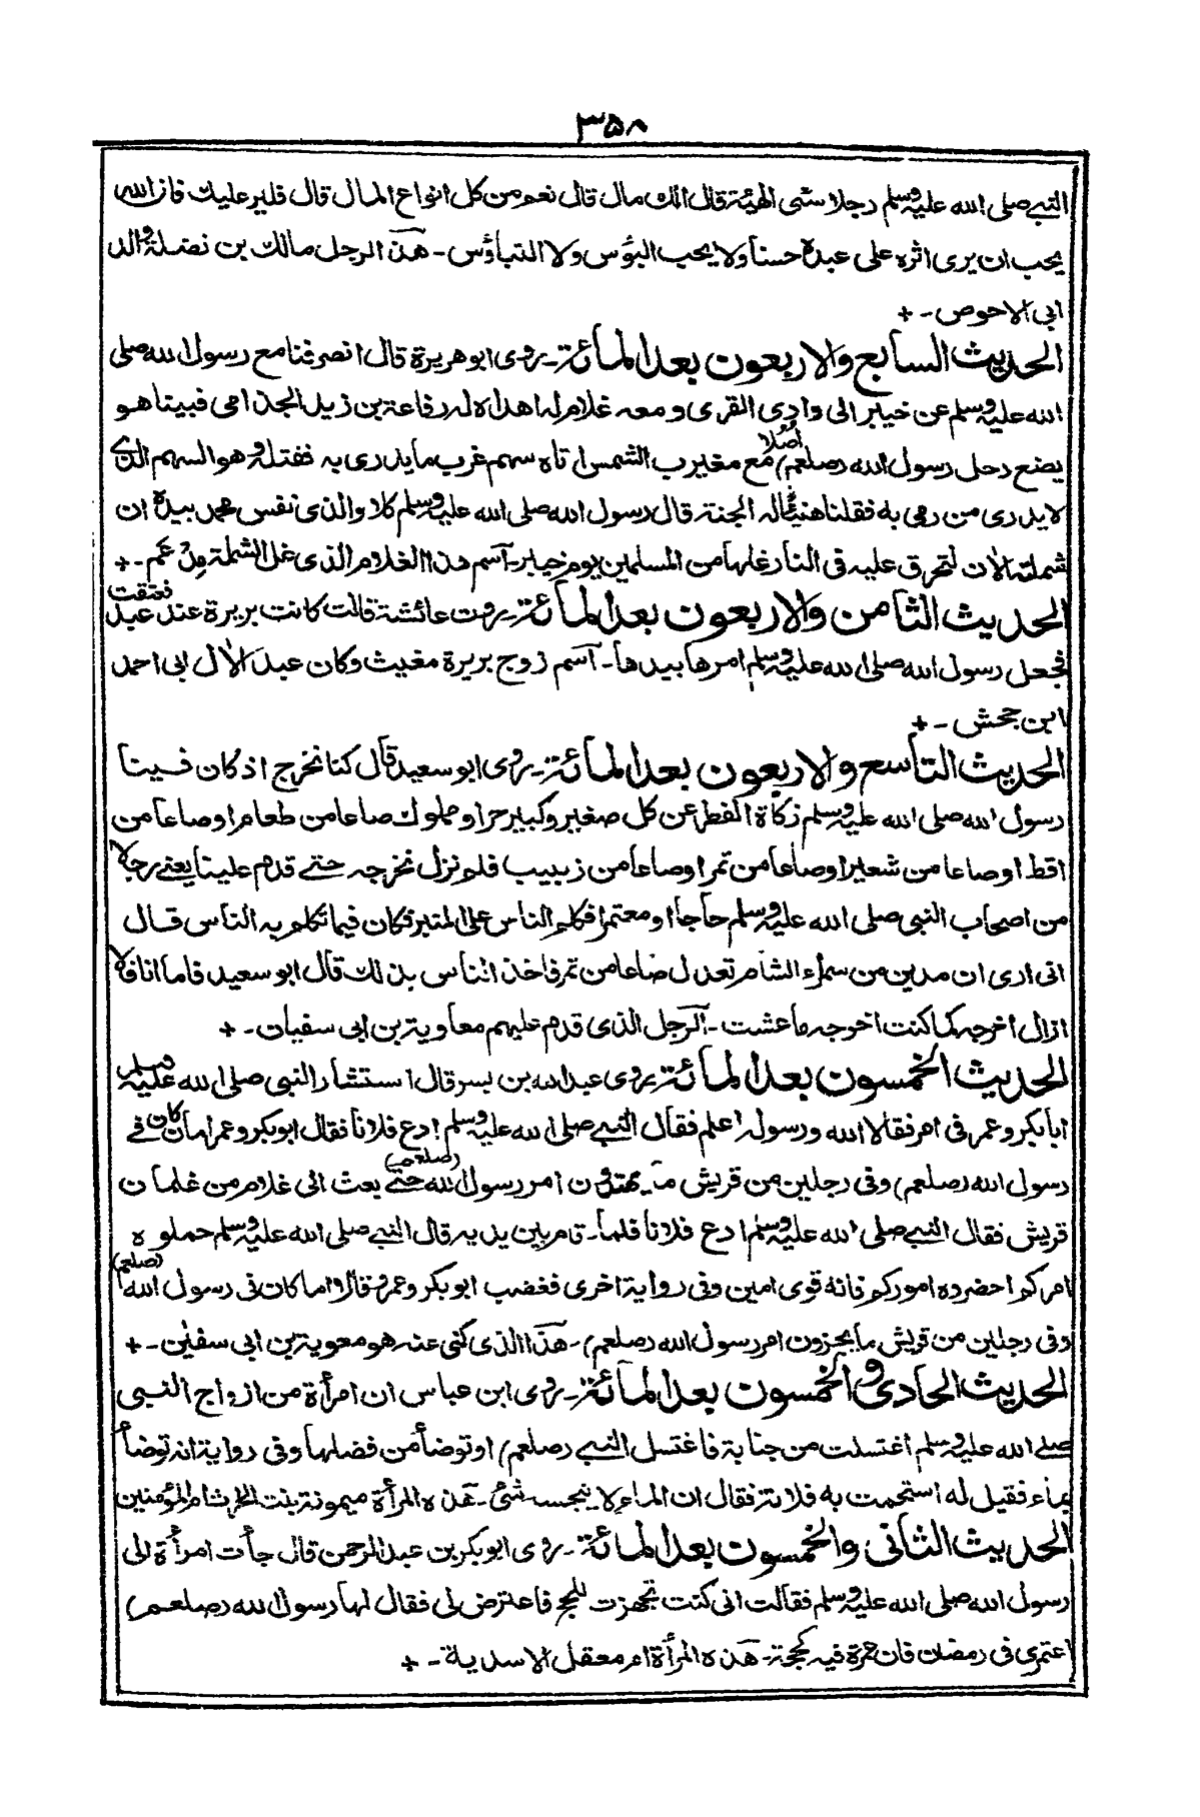 ٣٥٨
النبي صلى الله عليه وسلم رجلا سئى الهيئة قال الك مال قال نعم من كل انواع المال قال فلير عليك فان الله
يحب ان يرى اثره على عبده حسنا ولا يحب البؤس ولا التباؤس - هذا الرجل مالك بن نضلة والد
ابى الاحوص - +
الحديث السابع والاربعون بعد المائة - روى ابو هريرة قال انصرفنا مع رسول الله صلى
الله عليه وسلم عن خيبر الى وادى القرى ومعه غلام له اهداه له رفاعة بن زيد الجذامى فبينا هو
يضع رحل رسول الله (صلعم) اصلا مع مغيرب الشمس اتاه سهم غرب ما يدرى به فقتله وهو السهم الذى
لا يدرى من رمى به فقلنا هنيئا له الجنة قال رسول الله صلى الله عليه وسلم كلا والذى نفس محمد بيده ان
شملته الان لتحرق عليه فى النار غلها من المسلمين يوم خيبر - اسم هذا الغلام الذى غل الشملة مدعم - +
الحديث الثامن والاربعون بعد المائة - روت عائشة قالت كانت بريرة عند عبد فعتقت
فجعل رسول الله صلى الله عليه وسلم امرها بيدها - اسم زوج بريرة مغيث وكان عبد الال ابى احمد
ابن جحش - +
الحديث التاسع والاربعون بعد المائة - روى ابو سعيد قال كنا نخرج اذ كان فينا
رسول الله صلى الله عليه وسلم زكاة الفطر عن كل صغير وكبير حر او مملوك صاعا من طعام او صاعا من
اقط او صاعا من شعير او صاعا من تمر او صاعا من زبيب فلم نزل نخرجه حتى قدم علينا يعنى رجلا
من اصحاب النبى صلى الله عليه وسلم حاجا او معتمرا فكلم الناس على المنبر فكان فيما تكلم به الناس قال
انى ارى ان مدين من سمراء الشام تعدل صاعا من تمر فاخذ الناس بذلك قال ابو سعيد فاما انا فلا
ازال اخرجه كما كنت اخرجه ما عشت - الرجل الذى قدم عليهم معاوية بن ابى سفيان - +
الحديث الخمسون بعد المائة روى عبد الله بن بسر قال استشار النبى صلى الله عليه وسلم
ابا بكر وعمر فى امر فقالا الله ورسوله اعلم فقال النبى صلى الله عليه وسلم ادع فلانا فقال ابو بكر وعمر اما كان فى
رسول الله (صلعم) وفى رجلين من قريش ما امر رسول الله (صلعم) حتى بعث الى غلام من غلمان
قريش فقال النبى صلى الله عليه وسلم ادع فلانا فلما - قام بين يديه قال النبى صلى الله عليه وسلم حملوه
امركم احضروه اموركم فانه قوى امين وفى رواية اخرى فغضب ابو بكر وعمر وقالا اما كان فى رسول الله (صلعم)
وفى رجلين من قريش ما يجزون امر رسول الله (صلعم) - هذا الذى كنى عنه هو معوية بن ابى سفين - +
الحديث الحادى والخمسون بعد المائة - روى ابن عباس ان امرأة من ازواج النبى
صلى الله عليه وسلم اغتسلت من جنابة فاغتسل النبى (صلعم) او توضأ من فضلها وفى رواية انه توضأ
بماء فقيل له استحمت به فلانة فقال ان الماء لا ينجسه شئ - هذه المرأة ميمونة بنت الحرث ام المؤمنين
الحديث الثانى والخمسون بعد المائة - روى ابو بكر بن عبد الرحمن قال جأت امرأة الى
رسول الله صلى الله عليه وسلم فقالت انى كنت تجهزت للحج فاعترض لى فقال لها رسول الله (صلعم)
اعتمرى فى رمضان فان عمرة فيه كحجة - هذه المرأة ام معقل الاسدية - +